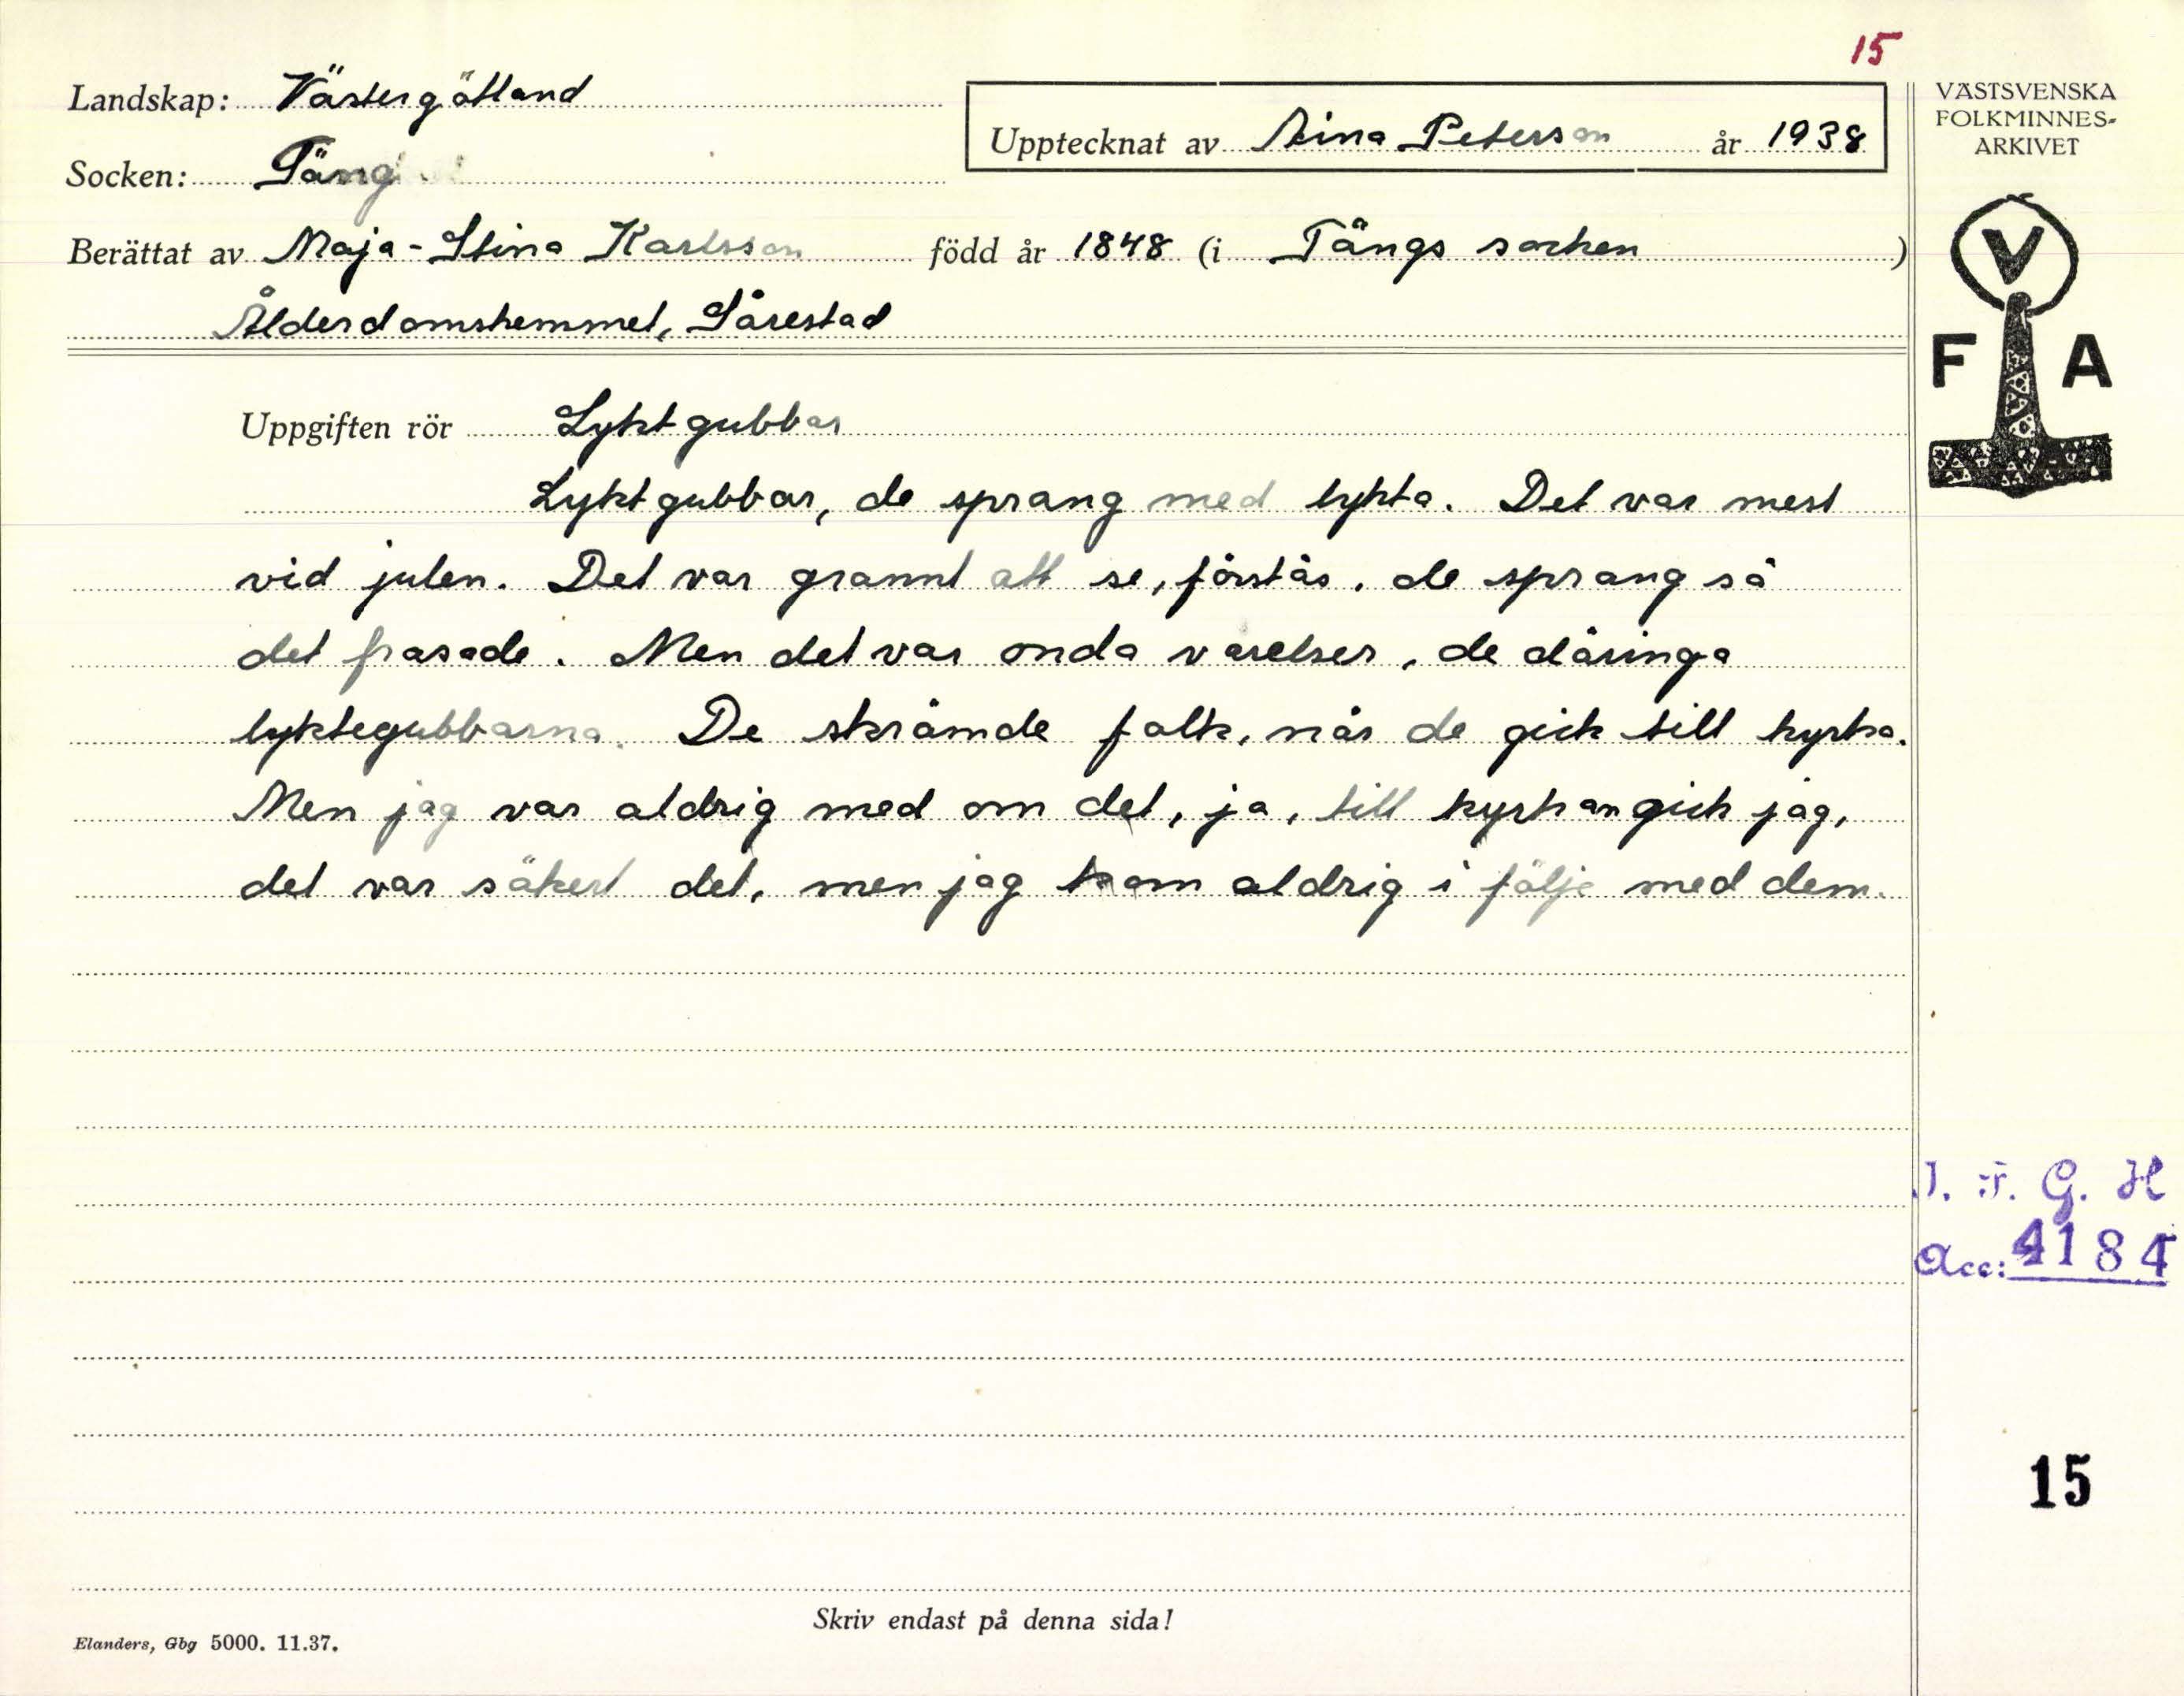 15
Landskap: Västergötland
Upptecknat av Aina Peterson år 1938
Socken: Täng
Berättat av Maja-Stina Karlsson född år 1848 (i Tängs socken)
Ålderdomshemmet, Särestad
Uppgiften rör Lyktgubbar
Lyktgubbar, de sprang med lykta. Det var mest
vid julen. Det var grannt att se, förstås, de sprang så
det frasade. Men det var onda varelser, de däringa
lyktegubbarna. De skrämde folk, när de gick till kyrka.
Men jag var aldrig med om det, ja, till kyrkan gick jag,
det var säkert det, men jag kom aldrig i följe med dem.
Skriv endast på denna sida!
Elanders, Gbg 5000. 11.37.
VÄSTSVENSKA
FOLKMINNES-
ARKIVET
V
F A
I. F. G. H
Acc: 4184
15